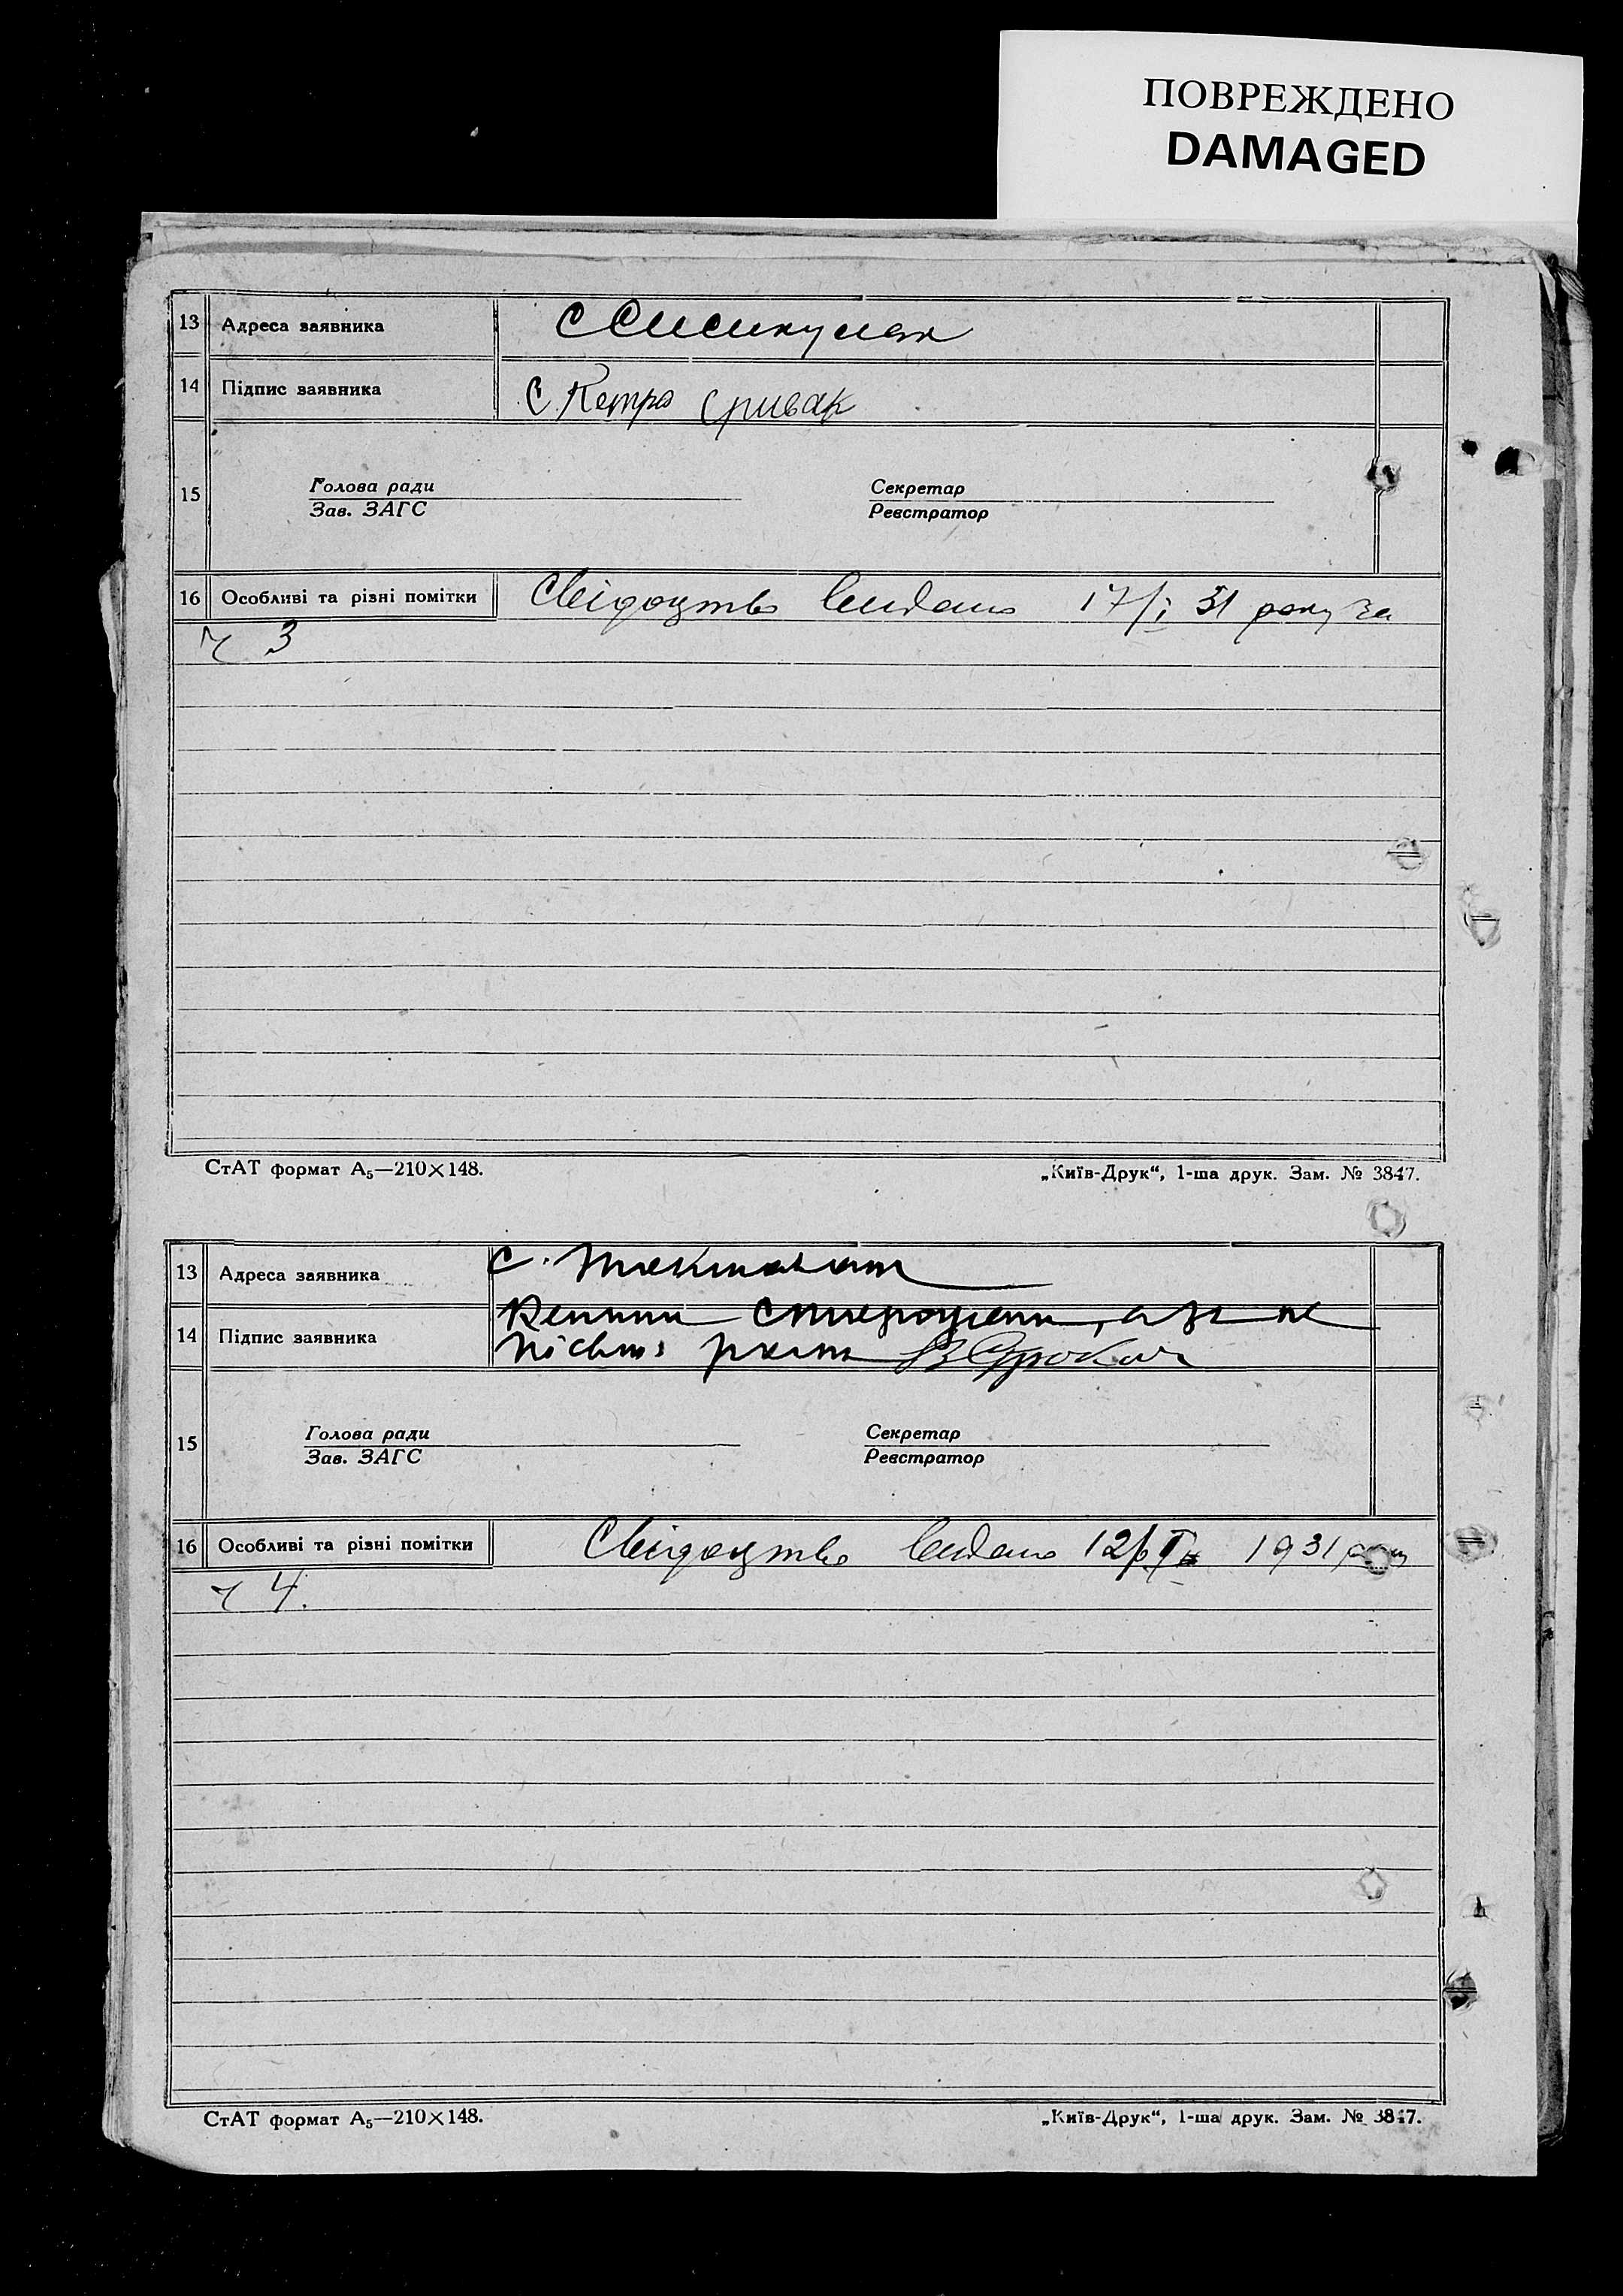 ПОВРЕЖДЕНО
DAMAGED
13 Адреса заявника
14 Підпис заявника
15 Голова ради Секретар
Зав. ЗАГС Реєстратор
16 Особливі та різні помітки Свідоцтво видано 17/I 31 року за
ч 3
СтАТ формат А₅—210×148. „Київ-Друк“, 1-ша друк. Зам. № 3847.
13 Адреса заявника с.
14 Підпис заявника
15 Голова ради Секретар
Зав. ЗАГС Реєстратор
16 Особливі та різні помітки Свідоцтво видано 1931 року
ч 4.
СтАТ формат А₅—210×148. „Київ-Друк“, 1-ша друк. Зам. № 3847.